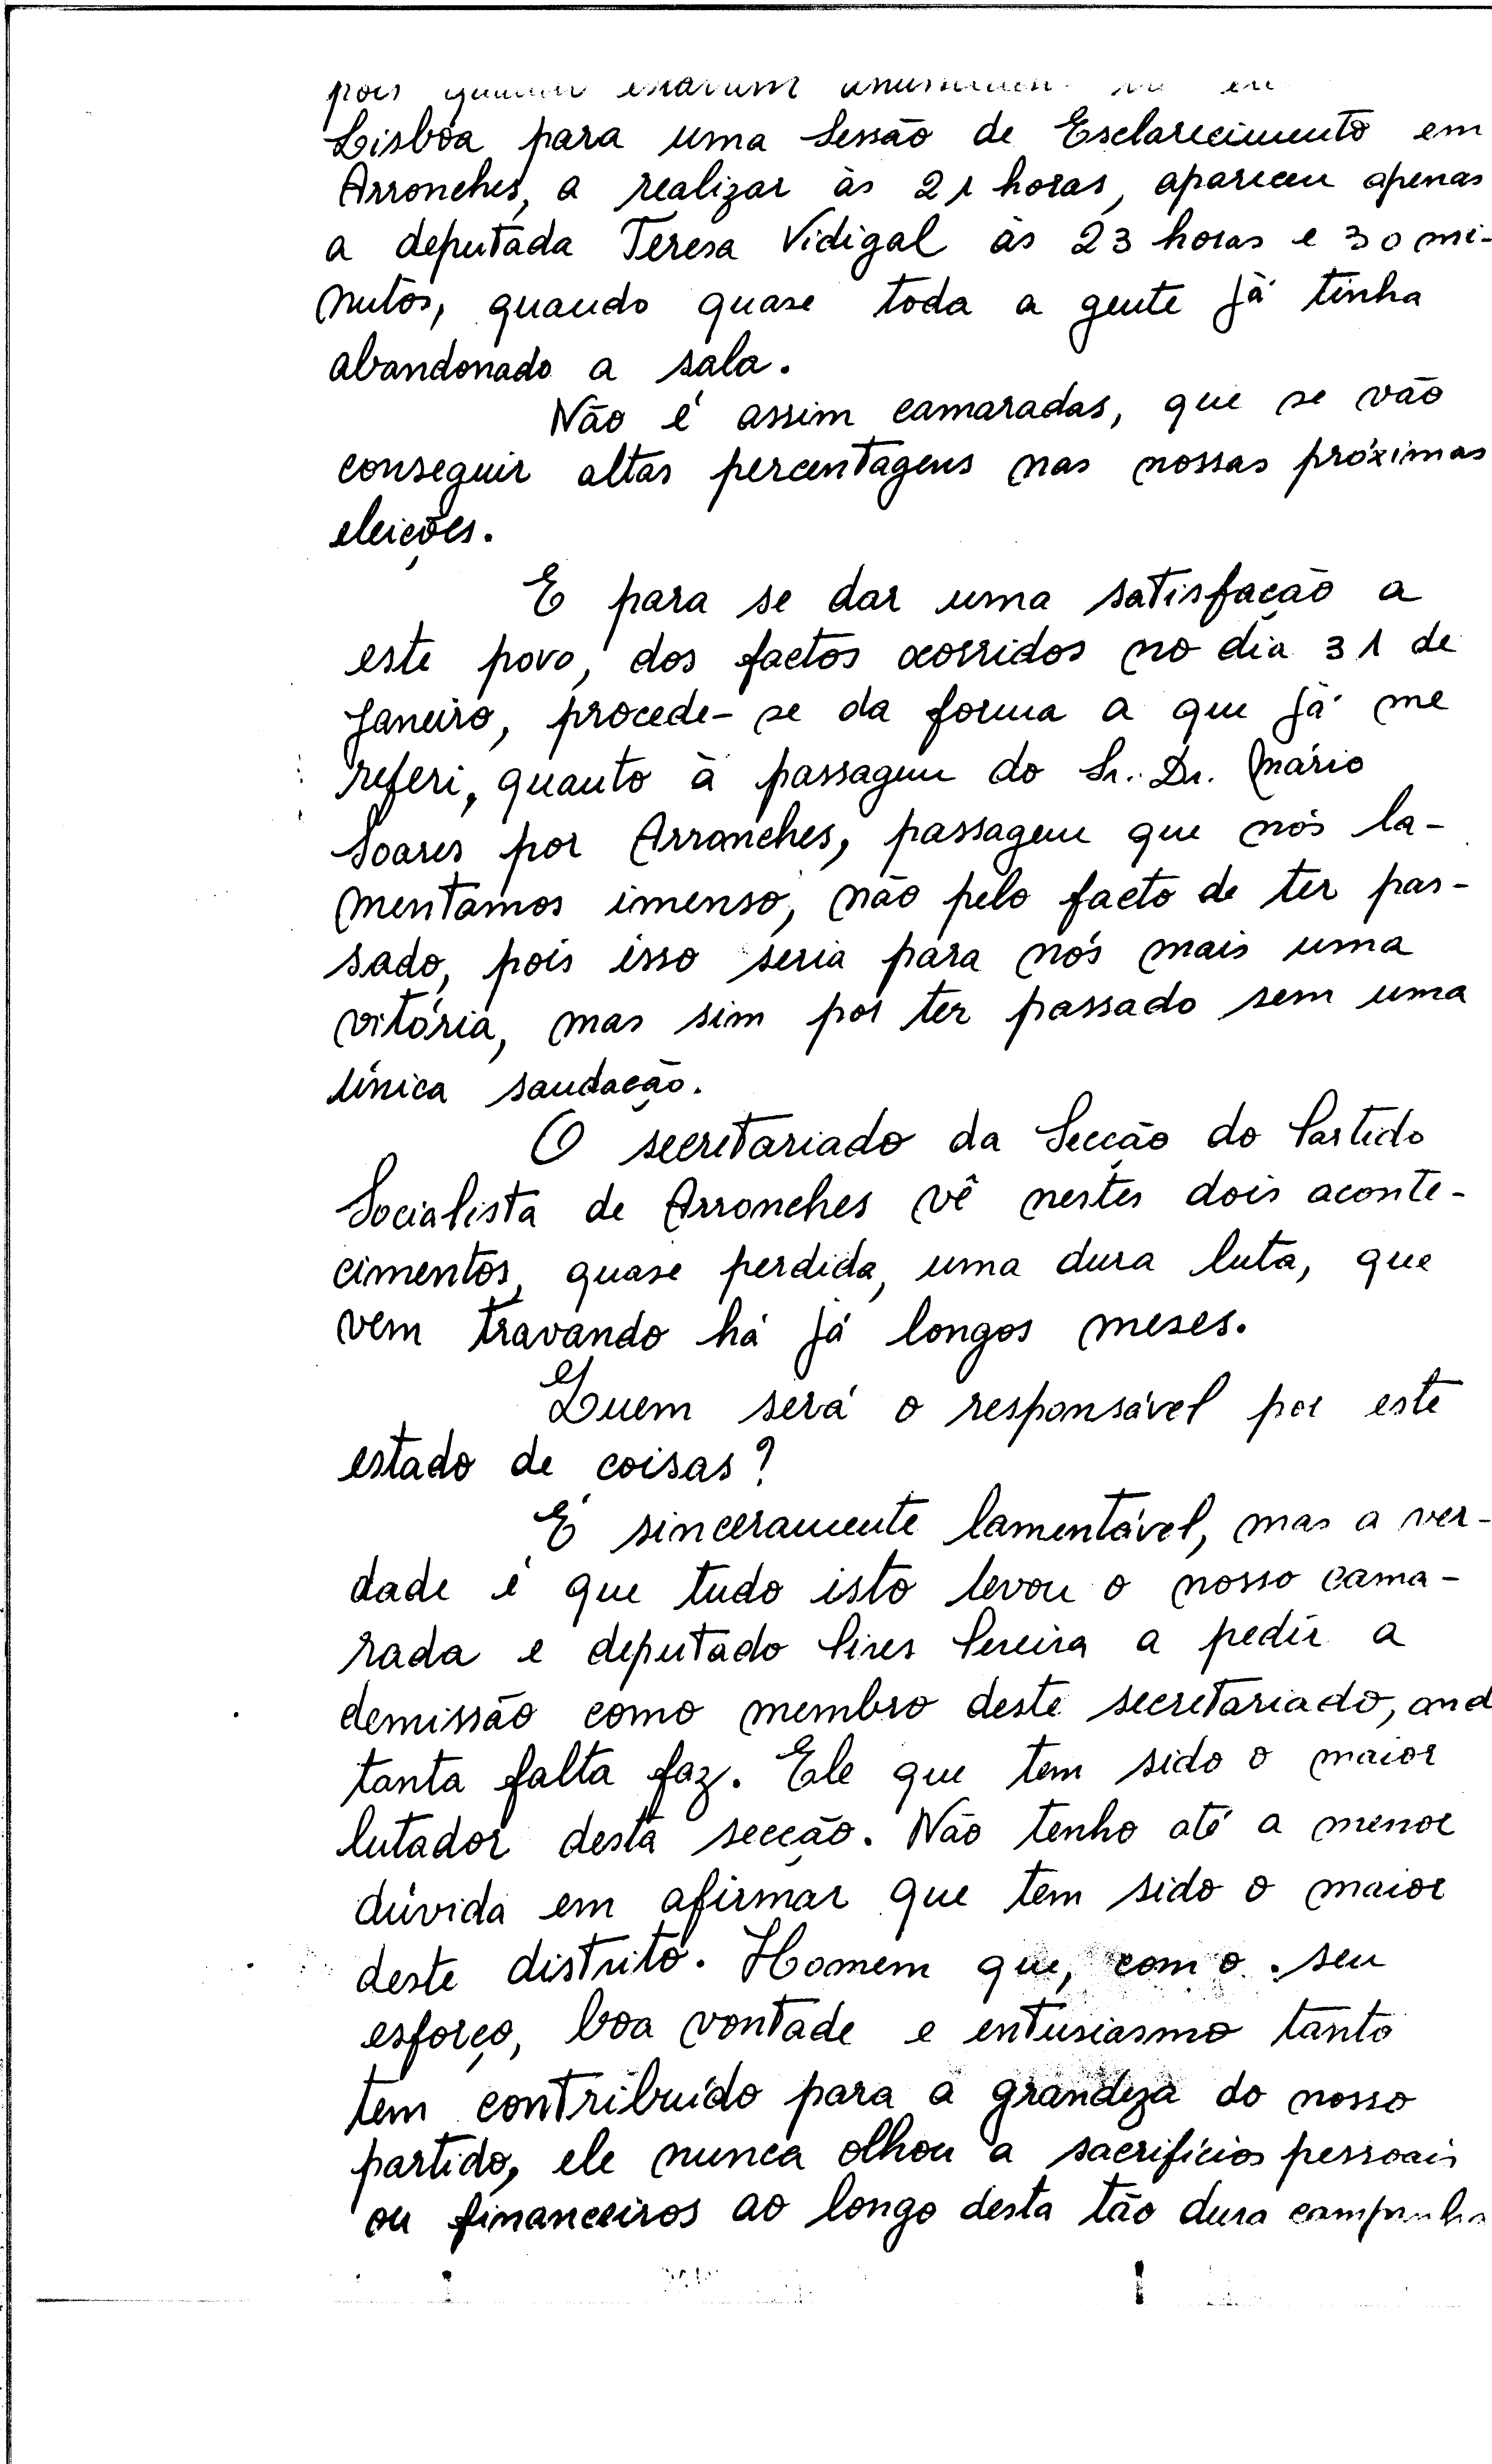 pois
Lisboa para uma Sessão de Esclarecimento em
Arronches, a realizar às 21 horas, apareceu apenas
a deputada Teresa Vidigal às 23 horas e 30 mi-
nutos, quando quase toda a gente já tinha
abandonado a sala.
Não é assim camaradas, que se vão
conseguir altas percentagens nas nossas próximas
eleições.
E para se dar uma satisfação a
este povo, dos factos ocorridos no dia 31 de
Janeiro, procede-se da forma a que já me
referi, quanto à passagem do Sr. Dr. Mário
Soares por Arronches, passagem que nós la-
mentamos imenso, não pelo facto de ter pas-
sado, pois isso seria para nós mais uma
vitória, mas sim por ter passado sem uma
única saudação.
O secretariado da Secção do Partido
Socialista de Arronches vê nestes dois aconte-
cimentos, quase perdida, uma dura luta, que
vem travando há já longos meses.
Quem será o responsável por este
estado de coisas?
É sinceramente lamentável, mas a ver-
dade é que tudo isto levou o nosso cama-
rada e deputado Pires Pereira a pedir a
demissão como membro deste secretariado, ond
tanta falta faz. Ele que tem sido o maior
lutador desta secção. Não tenho até a menor
dúvida em afirmar que tem sido o maior
deste distrito. Homem que, com o seu
esforço, boa vontade e entusiasmo tanto
tem contribuído para a grandeza do nosso
partido, ele nunca olhou a sacrifícios pessoais
ou financeiros ao longo desta tão dura campanha